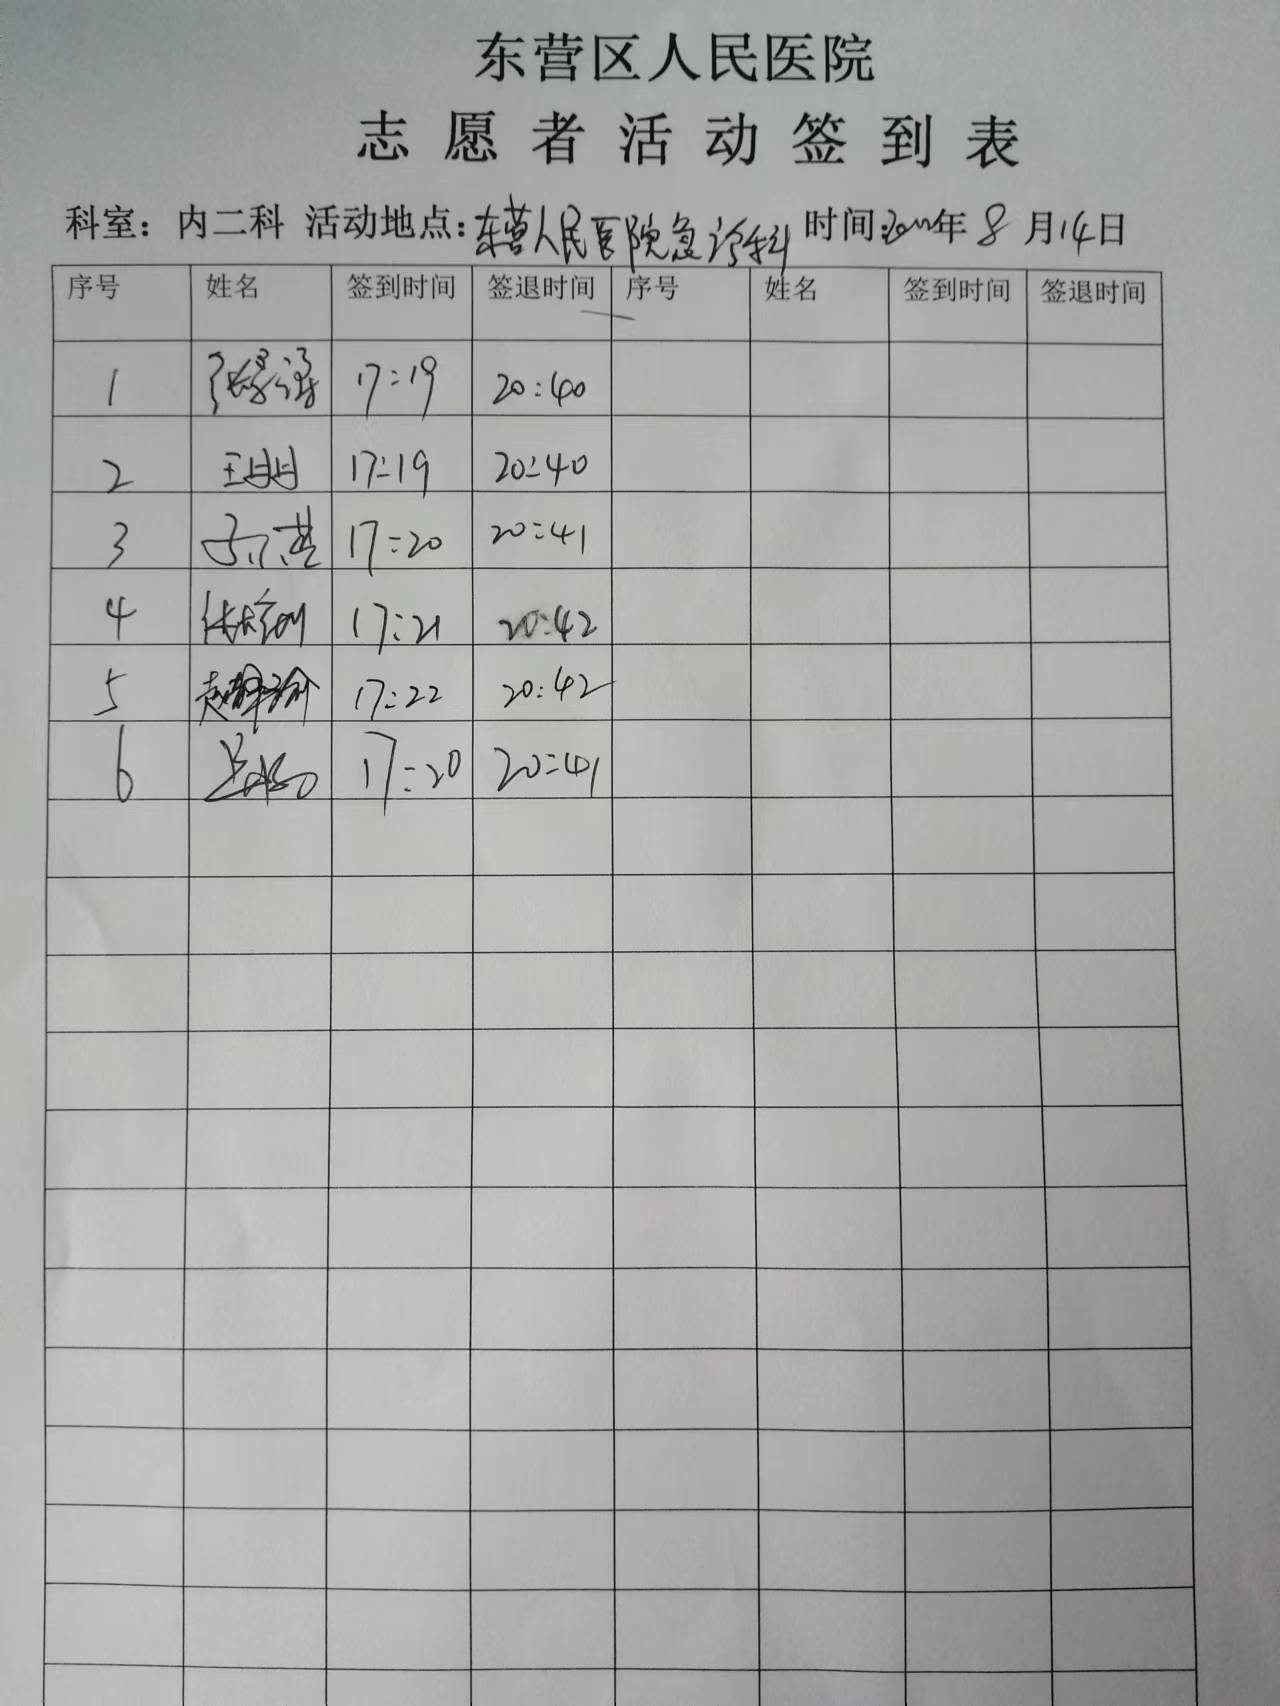 东营区人民医院
志愿者活动签到表
科室：内二科 活动地点：东营人民医院急诊科 时间：年 8 月 14 日
序号 姓名 签到时间 签退时间 序号 姓名 签到时间 签退时间
1 17:19 20:40
2 17:19 20:40
3 17:20 20:41
4 17:21 20:42
5 赵 17:22 20:42
6 17:20 20:41